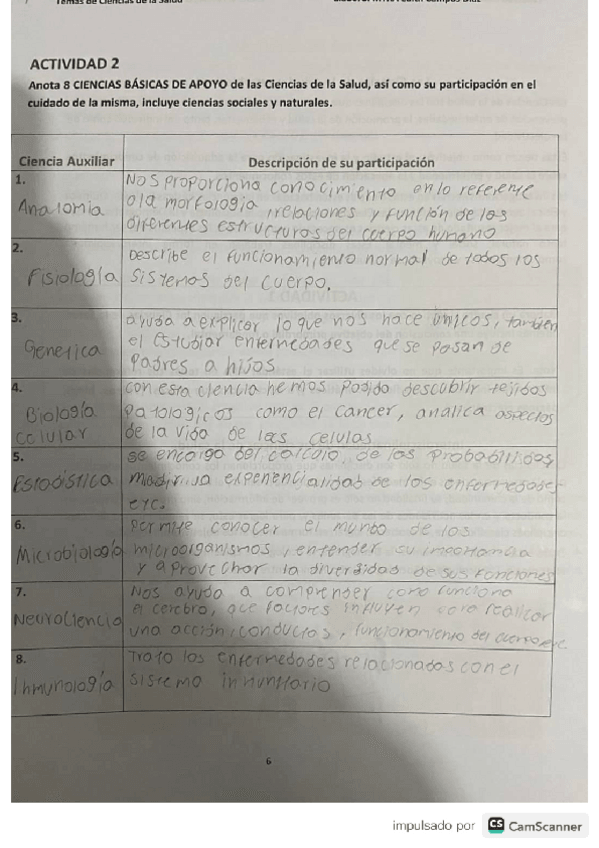 Temas de Ciencias de la Salud
ACTIVIDAD 2
Anota 8 CIENCIAS BÁSICAS DE APOYO de las Ciencias de la Salud, así como su participación en el
cuidado de la misma, incluye ciencias sociales y naturales.
Ciencia Auxiliar
Descripción de su participación
1.
Anatomia
Nos proporciona conocimiento en lo referente
a la morfología, relaciones y función de las
diferentes estructuras del cuerpo humano
2.
Fisiología
Describe el funcionamiento normal de todos los
sistemas del cuerpo.
3.
Genetica
ayuda a explicar lo que nos hace únicos, tambien
el estudiar enfermedades que se pasan de
Padres a hijos
4.
Biología
celular
con esta ciencia hemos podido descubrir tejidos
patologicos como el cancer, analica aspectos
de la vida de las celulas
5.
Estadistica
se encarga del calculo de las
de las enfermedades
etc.
6.
Microbiología
Permite conocer el mundo de los
microorganismos, entender su
y aprovechar la diversidad de sus funciones
7.
Neurociencia
Nos ayuda a comprender como funciona
el cerebro, que factores influyen para realizar
una acción, conductas, funcionamiento del cuerpo etc
8.
Inmunología
Trata las enfermedades relacionadas con el
sistema inmunitario
6
impulsado por CS CamScanner